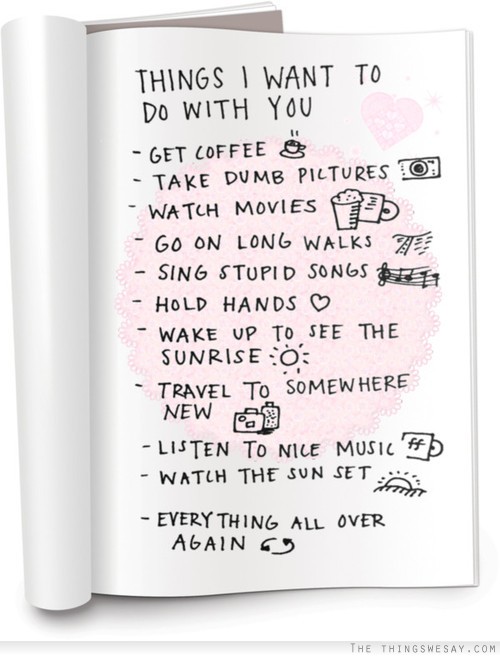 THINGS I WANT TO
DO WITH YOU
- GET COFFEE
- TAKE DUMB PICTURES
- WATCH MOVIES
- GO ON LONG WALKS
- SING STUPID SONGS
- HOLD HANDS
- WAKE UP TO SEE THE
SUNRISE
- TRAVEL TO SOMEWHERE
NEW
- LISTEN TO NICE MUSIC
- WATCH THE SUN SET
- EVERYTHING ALL OVER
AGAIN
THE THINGSWESAY.COM